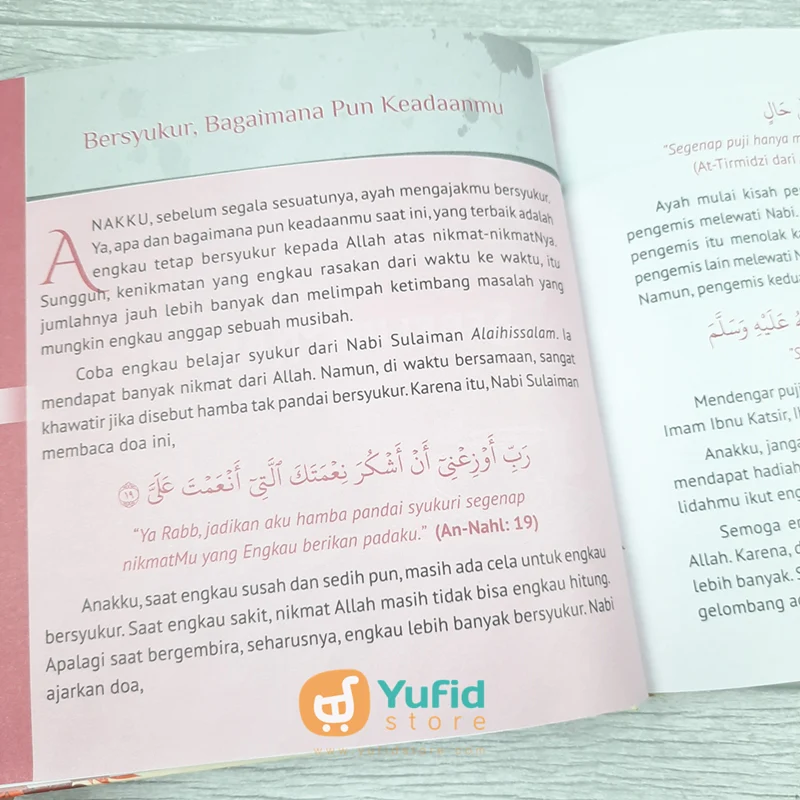 Bersyukur, Bagaimana Pun Keadaanmu
ANAKKU, sebelum segala sesuatunya, ayah mengajakmu bersyukur.
Ya, apa dan bagaimana pun keadaanmu saat ini, yang terbaik adalah
engkau tetap bersyukur kepada Allah atas nikmat-nikmatNya.
Sungguh, kenikmatan yang engkau rasakan dari waktu ke waktu, itu
jumlahnya jauh lebih banyak dan melimpah ketimbang masalah yang
mungkin engkau anggap sebuah musibah.
Coba engkau belajar syukur dari Nabi Sulaiman Alaihissalam. Ia
mendapat banyak nikmat dari Allah. Namun, di waktu bersamaan, sangat
khawatir jika disebut hamba tak pandai bersyukur. Karena itu, Nabi Sulaiman
membaca doa ini,
رَبِّ أَوْزِعْنِيٓ أَنْ أَشْكُرَ نِعْمَتَكَ ٱلَّتِيٓ أَنْعَمْتَ عَلَيَّ ١٩
"Ya Rabb, jadikan aku hamba pandai syukuri segenap
nikmatMu yang Engkau berikan padaku." (An-Nahl: 19)
Anakku, saat engkau susah dan sedih pun, masih ada cela untuk engkau
bersyukur. Saat engkau sakit, nikmat Allah masih tidak bisa engkau hitung.
Apalagi saat bergembira, seharusnya, engkau lebih banyak bersyukur. Nabi
ajarkan doa,
حَالٍ
"Segenap puji hanya
(At-Tirmidzi dari
Ayah mulai kisah
pengemis melewati Nabi.
pengemis itu menolak
pengemis lain melewati
Namun, pengemis
عَلَيْهِ وَسَلَّمَ
Mendengar
Imam Ibnu Katsir,
Anakku,
mendapat hadiah
lidahmu ikut
Semoga
Allah. Karena,
lebih banyak.
gelombang
Yufid
store